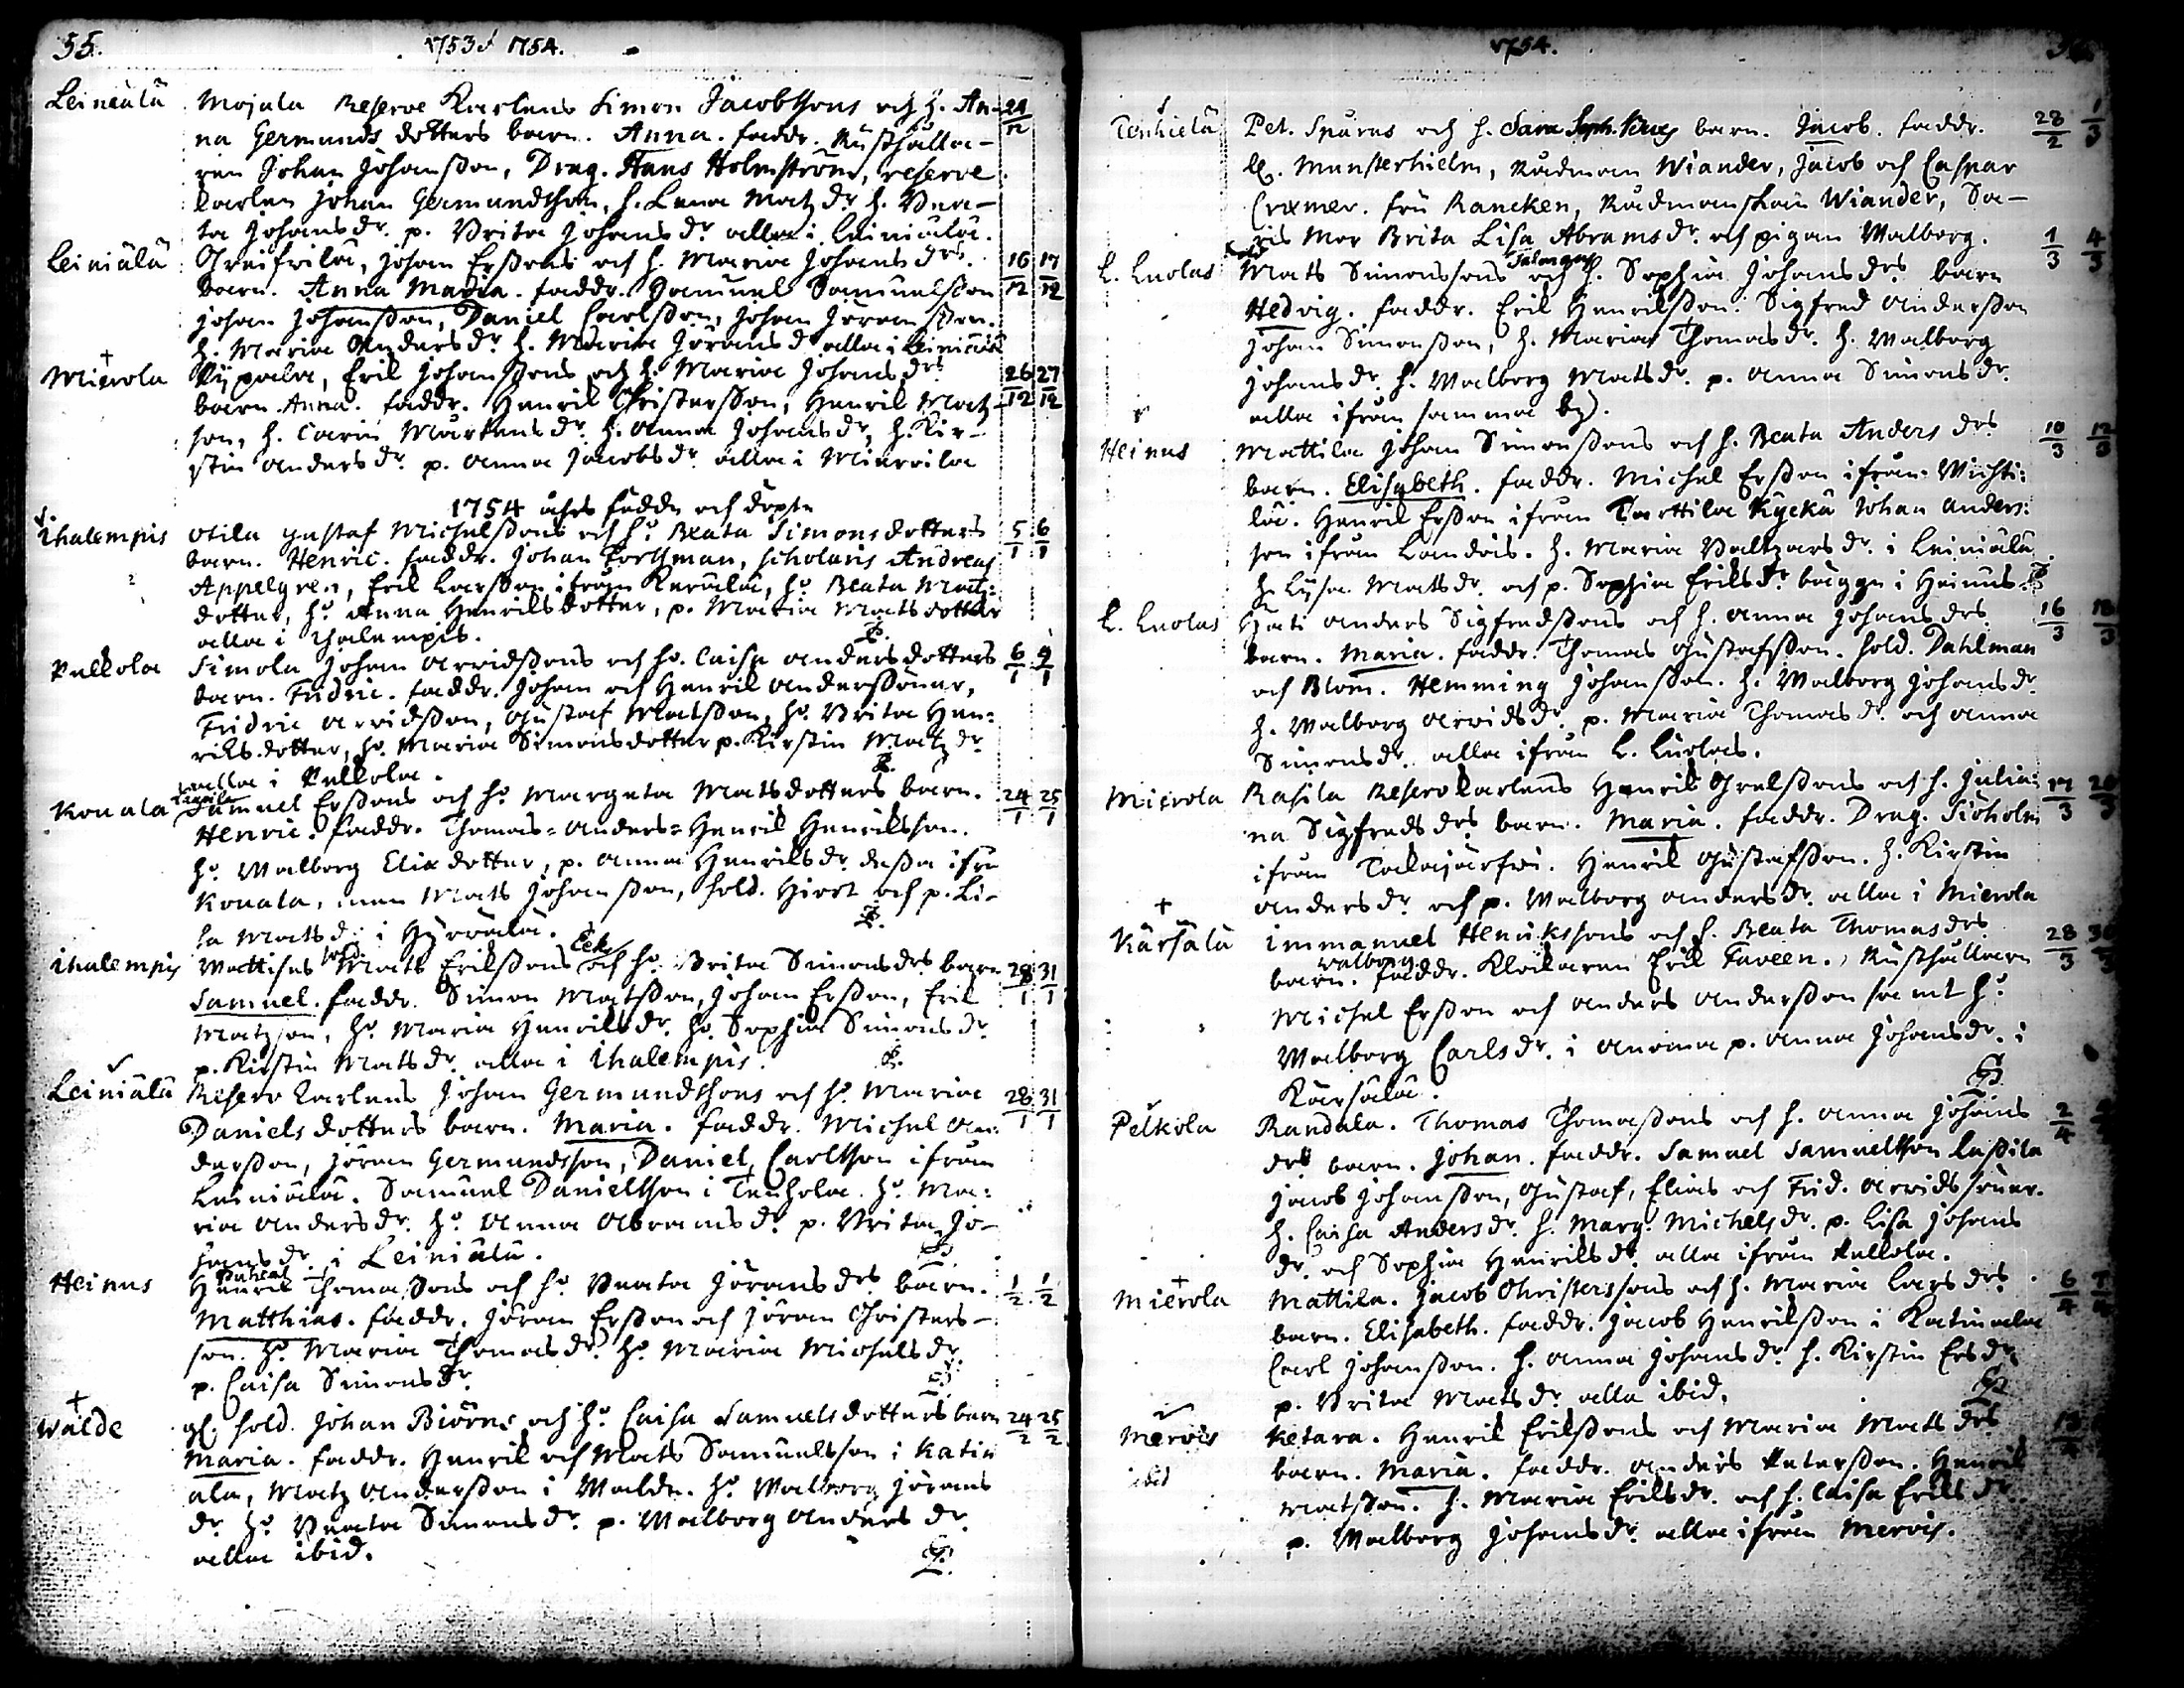 55.
1753 & 1754.
Leineälä Mojala Reserve Karlens Simon Jacobssons och h. An- 24/12
na Germunds dotters barn. Anna. faddr. Rusthålla-
ren Johan Johansson, Drag. Hans Holmström, reserve
karlen Johan Germundsson, h. Lena Matz dr h.
ta Johans dr. p. Brita Johans dr alla i Leiniälä.
Leiniälä Johan Ersons och h. Maria Johans drs 16/12 17/12
barn. Anna Maria. faddr. Samuel Samuelsson
Johan Johansson, Daniel Carlsson, Johan Jöransson.
h. Maria Anders dr h. Maria Jörans d alla i Leiniälä
Mierola Kijpala, Eric Johanssons och h. Maria Johans drs 26/12 27/12
barn. Anna. faddr. Henric Christersson, Henric Matz-
son, h. Carin Mårtens dr h. Anna Johans dr, h. Kir-
stin Anders dr p. Anna Jacobs dr alla i Mierola
1754 åhrs födde och döpte
Ihalempis Otila Gustaf Michelssons och ho Beata Simonsdotters 5/1 6/1
barn. Henric. faddr. Johan Forssman, scholaris Andreas
Appelgren, Eric Larsson ifrån Kerälä, ho Beata Mats
dotter, ho Anna Henricsdotter, p. Maria Matsdotter
alla i Ihalempis.
Pelkola Simola Johan Arvidssons och ho. Caisa Andersdotters 6/1 9/1
barn. Fridric. faddr. Johan och Henric Anderssöner,
Fridric Arvidsson, Gustaf Matsson, ho. Brita Hen=
riks dotter, ho. Maria Simonsdotter p. Kirstin Matz dr
alla i Pelkola.
Kouala Samuel Ersons och ho Margeta Matsdotters barn. 24/1 25/1
Henric. faddr. Thomas= Anders= Henric Henricsson.
ho Walborg Eliæ dotter, p. Anna Henrics dr dessa ifrå
Kouala, men Mats Johansson, sold. Hiort och p. Li-
sa Mats d. i Hyrvälä.
Ihalempis Mattisas sold. Mats Ericssons Eek och ho Brita Simons drs barn 28/1 31/1
Samuel. faddr. Simon Matsson, Johan Erson, Eric
Matzson, ho Maria Henrics dr, ho Sophia Simons dr
p. Kirstin Mats dr. alla i Ihalempis.
Leiniälä Reserv karlens Johan Germundssons och ho Maria 28/1 31/1
Danielsdotters barn. Maria. faddr. Michel An-
dersson, Jöran Germundsson, Daniel Carlsson ifrån
Leiniälä. Samuel Danielsson i Tenhola. ho Ma=
ria Anders dr. ho Anna Abrams dr p. Brita Jo-
hans dr. i Leiniälä.
Heinus Henric Thomassons och ho Beata Jörans drs barn. 1/2 1/2
Matthias. faddr. Jöran Erson och Jöran Christers-
son. ho Maria Thomas dr. ho Maria Michels dr.
p. Caisa Simons dr.
Walde gl. sold. Johan Biörns och ho Caisa Samuelsdotters barn 24/2 25/2
Maria. faddr. Henric och Mats Samuelsson i Katin
ala, Matz Andersson i Walde. ho Walborg Jörans
dr. ho Beata Simons dr. p. Walborg Anders dr.
alla ibid.
1754.
Tenhielä Pet. Spårus och h. Sara Soph. barn. Jacob. faddr. 28/2 1/3
Munsterhielm, Rådman Wiander, Jacob och Caspar
Cræmer. fru Rancken, Rådmanskan Wiander, Sa-
ris Mor Brita Lisa Abrams dr. och pigan Walborg.
L. Luolas Mats Simonssons och h. Sophia Johans drs barn 1/3 4/3
Hedvig. faddr. Eric Henricsson. Sigfred Andersson
Johan Simonsson, h. Maria Thomas dr. h. Walborg
Johans dr. h. Walborg Mats dr. p. Anna Simons dr.
alla ifrån samma by.
Heinus Mattila Johan Simonssons och h. Beata Anders drs 10/3 12/3
barn. Elisabeth. faddr. Michel Erson ifrån Wichti=
lä. Henric Erson ifrån Tarttila Kyckä Johan Anders=
son ifrån Landois. h. Maria Baltzars dr. i Leiniälä
h. Lysa Mats dr. och p. Sophia Erics dr bägge i Heinus.
L. Luolas Hati Anders Sigfredssons och h. Anna Johans drs 16/3 18/3
barn. Maria. faddr. Thomas Gustafsson. sold. Dahlman
och Blom. Hemming Johansson. h. Walborg Johans dr
h. Walborg Arvids dr. p. Maria Thomas dr. och Anna
Simons dr. alla ifrån L. Luolas.
Mierola Rasila Reservkarlens Henric Grelssons och h. Julia= 17/3 20/3
na Sigfreds drs barn. Maria. faddr. Drag. Siöholm
ifrån Takajärfwi. Henric Gustafsson. h. Kirstin
Anders dr. och p. Walborg Anders dr. alla i Mierola
Kärsälä Immanuel Henrikssons och h. Beata Thomas drs 28/3 30/3
barn. Walborg. faddr. Klockaren Eric Faveen., Rusthållaren
Michel Erson och Anders Andersson samt ho
Walborg Carls dr. i Anoma p. Anna Johans dr. i
Kärsälä.
Pelkola Randala. Thomas Thomassons och h. Anna Johans 2/4
drs barn. Johan. faddr. Samuel Samuelsson Lassila
Jacob Johansson, Gustaf, Elias och Frid. Arvidssöner.
h. Caisa Anders dr. h. Marg. Michels dr. p. Lisa Johans
dr. och Sophia Henrics dr. alla ifrån Pelkola.
Mierola Mattila. Jacob Christerssons och h. Maria Lars drs 6/4 7/4
barn. Elisabeth. faddr. Jacob Henricsson i Katinala
Carl Johansson. h. Anna Johans dr. h. Kirstin Ers dr
p. Brita Mats dr alla ibid.
Mervis Ketara. Henric Ericssons och Maria Mats drs
ibid barn. Maria. faddr. Anders Petersson. Henric
Matsson. h. Maria Erics dr. och h. Caisa Erics dr.
p. Walborg Johans dr alla ifrån Mervis.